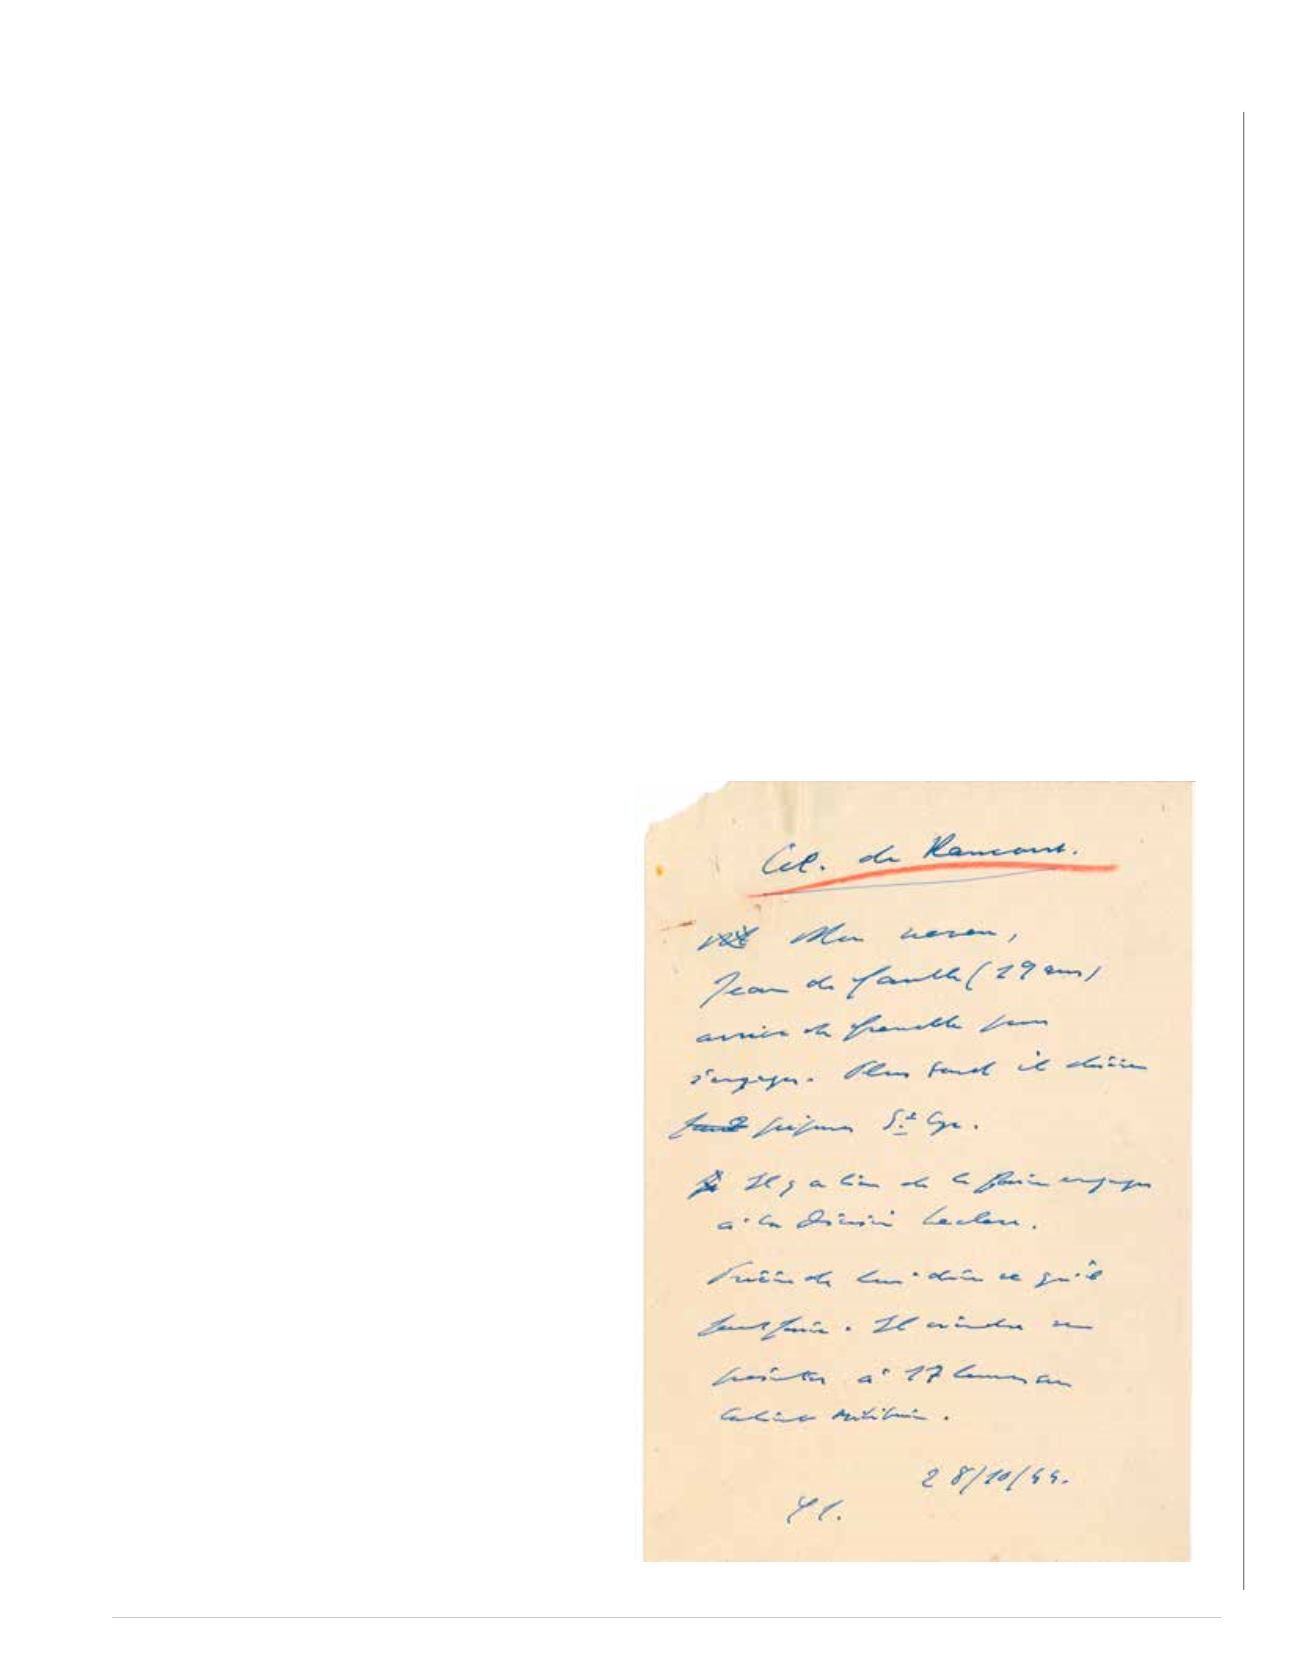 Col. de Rancourt.
Mon neveu,
Jean de Gaulle (19 ans)
arrive de Grenoble pour
s'engager. Plus tard il désire
préparer St Cyr.
Il y a lieu de le faire engager
à la Division Leclerc.
Prière de lui dire ce qu'il
faut faire. Il viendra se
présenter à 17 heures au
Cabinet militaire.
28/10/44.